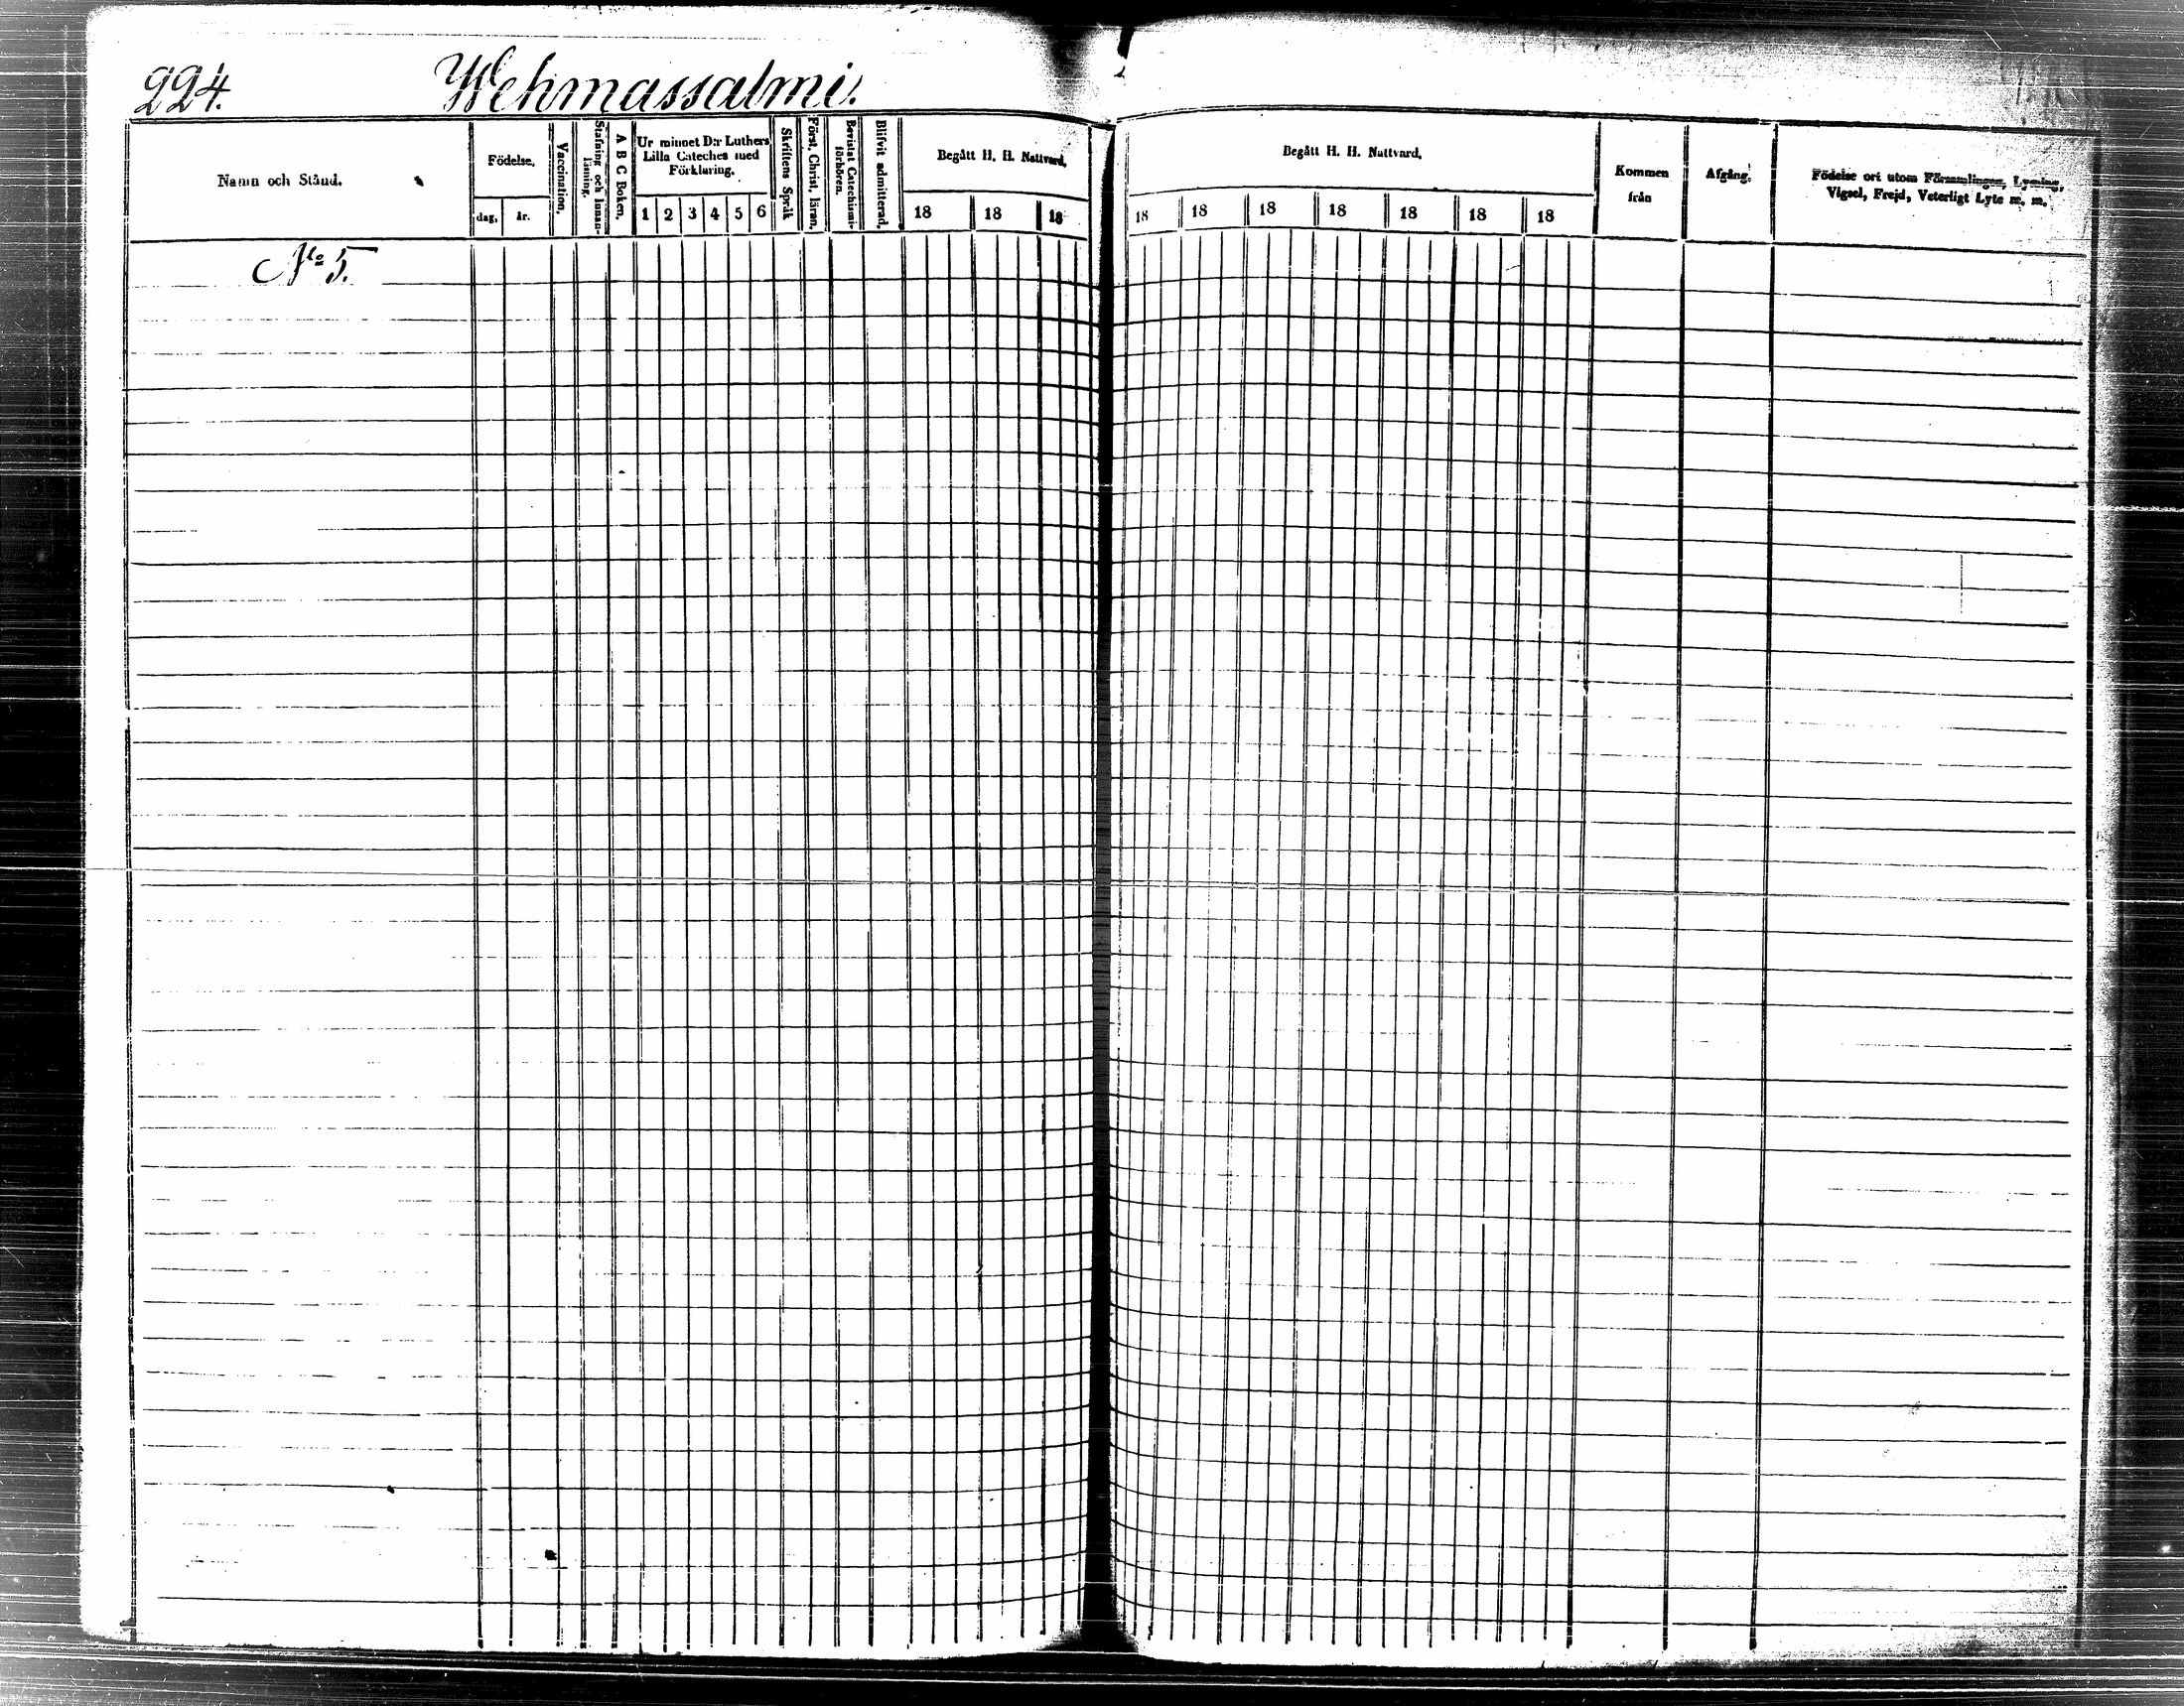 224. Wehmassalmi.
Namn och Stånd.
Födelse.
dag. år.
Vaccination.
Stafning och Innan-
läsning.
A B C Boken.
Ur minnet D:r Luthers
Lilla Cateches med
Förklaring.
1 2 3 4 5 6
Skriftens Språk
Först. Christ. läran.
Bevistat Catechismi-
förhören.
Blifvit admitterad.
Begått H. H. Nattvard.
18 18 18
Begått H. H. Nattvard.
18 18 18 18 18 18 18
Kommen
från
Afgång.
Födelse ort utom Församlingen, Lysning,
Vigsel, Frejd, Veterligt Lyte m. m.
No 5.